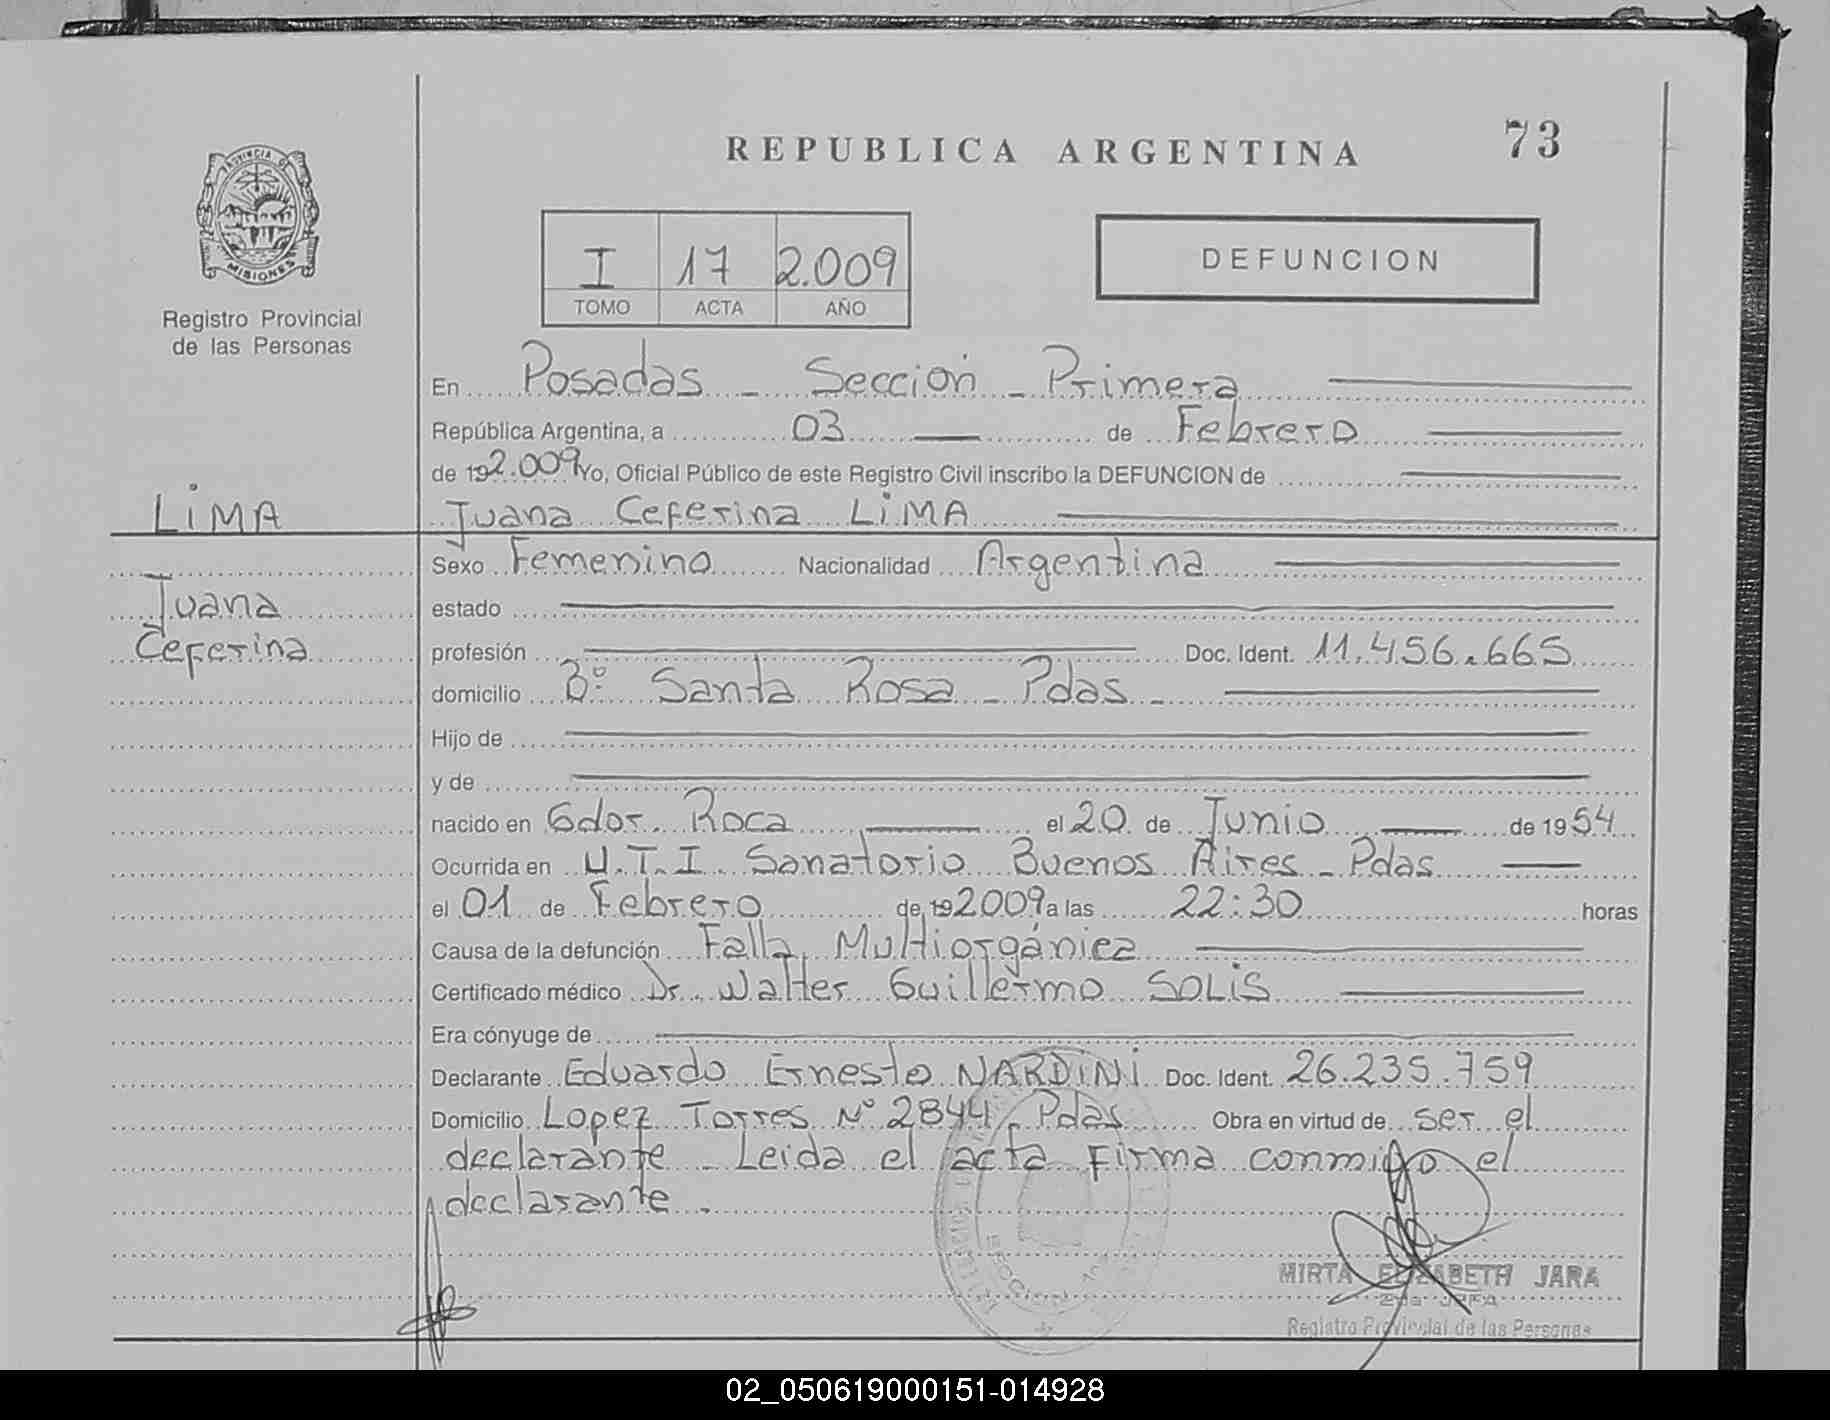 REPUBLICA ARGENTINA
73
PROVINCIA DE
MISIONES
Registro Provincial
de las Personas
I 17 2.009
TOMO ACTA AÑO
DEFUNCION
En Posadas - Sección - Primera
República Argentina, a 03 de Febrero
de 192.009 Yo, Oficial Público de este Registro Civil inscribo la DEFUNCION de
LiMA
Juana Ceferina LiMA
Sexo Femenino Nacionalidad Argentina
Juana
estado
Ceferina
profesión Doc. Ident. 11.456.665
domicilio Bº Santa Rosa - Pdas -
Hijo de
y de
nacido en Gdor. Roca el 20 de Junio de 1954
Ocurrida en U.T.I. Sanatorio Buenos Aires - Pdas
el 01 de Febrero de 192009 a las 22:30 horas
Causa de la defunción Falla Multiorgánica
Certificado médico Dr. Walter Guillermo SOLiS
Era cónyuge de
Declarante Eduardo Ernesto NARDiNi Doc. Ident. 26.235.759
Domicilio Lopez Torres Nº 2844, Pdas Obra en virtud de ser el
declarante - Leida el acta firma conmigo el
declarante.
MIRTA ELIZABETH JARA
Registro Provincial de las Personas
02_050619000151-014928